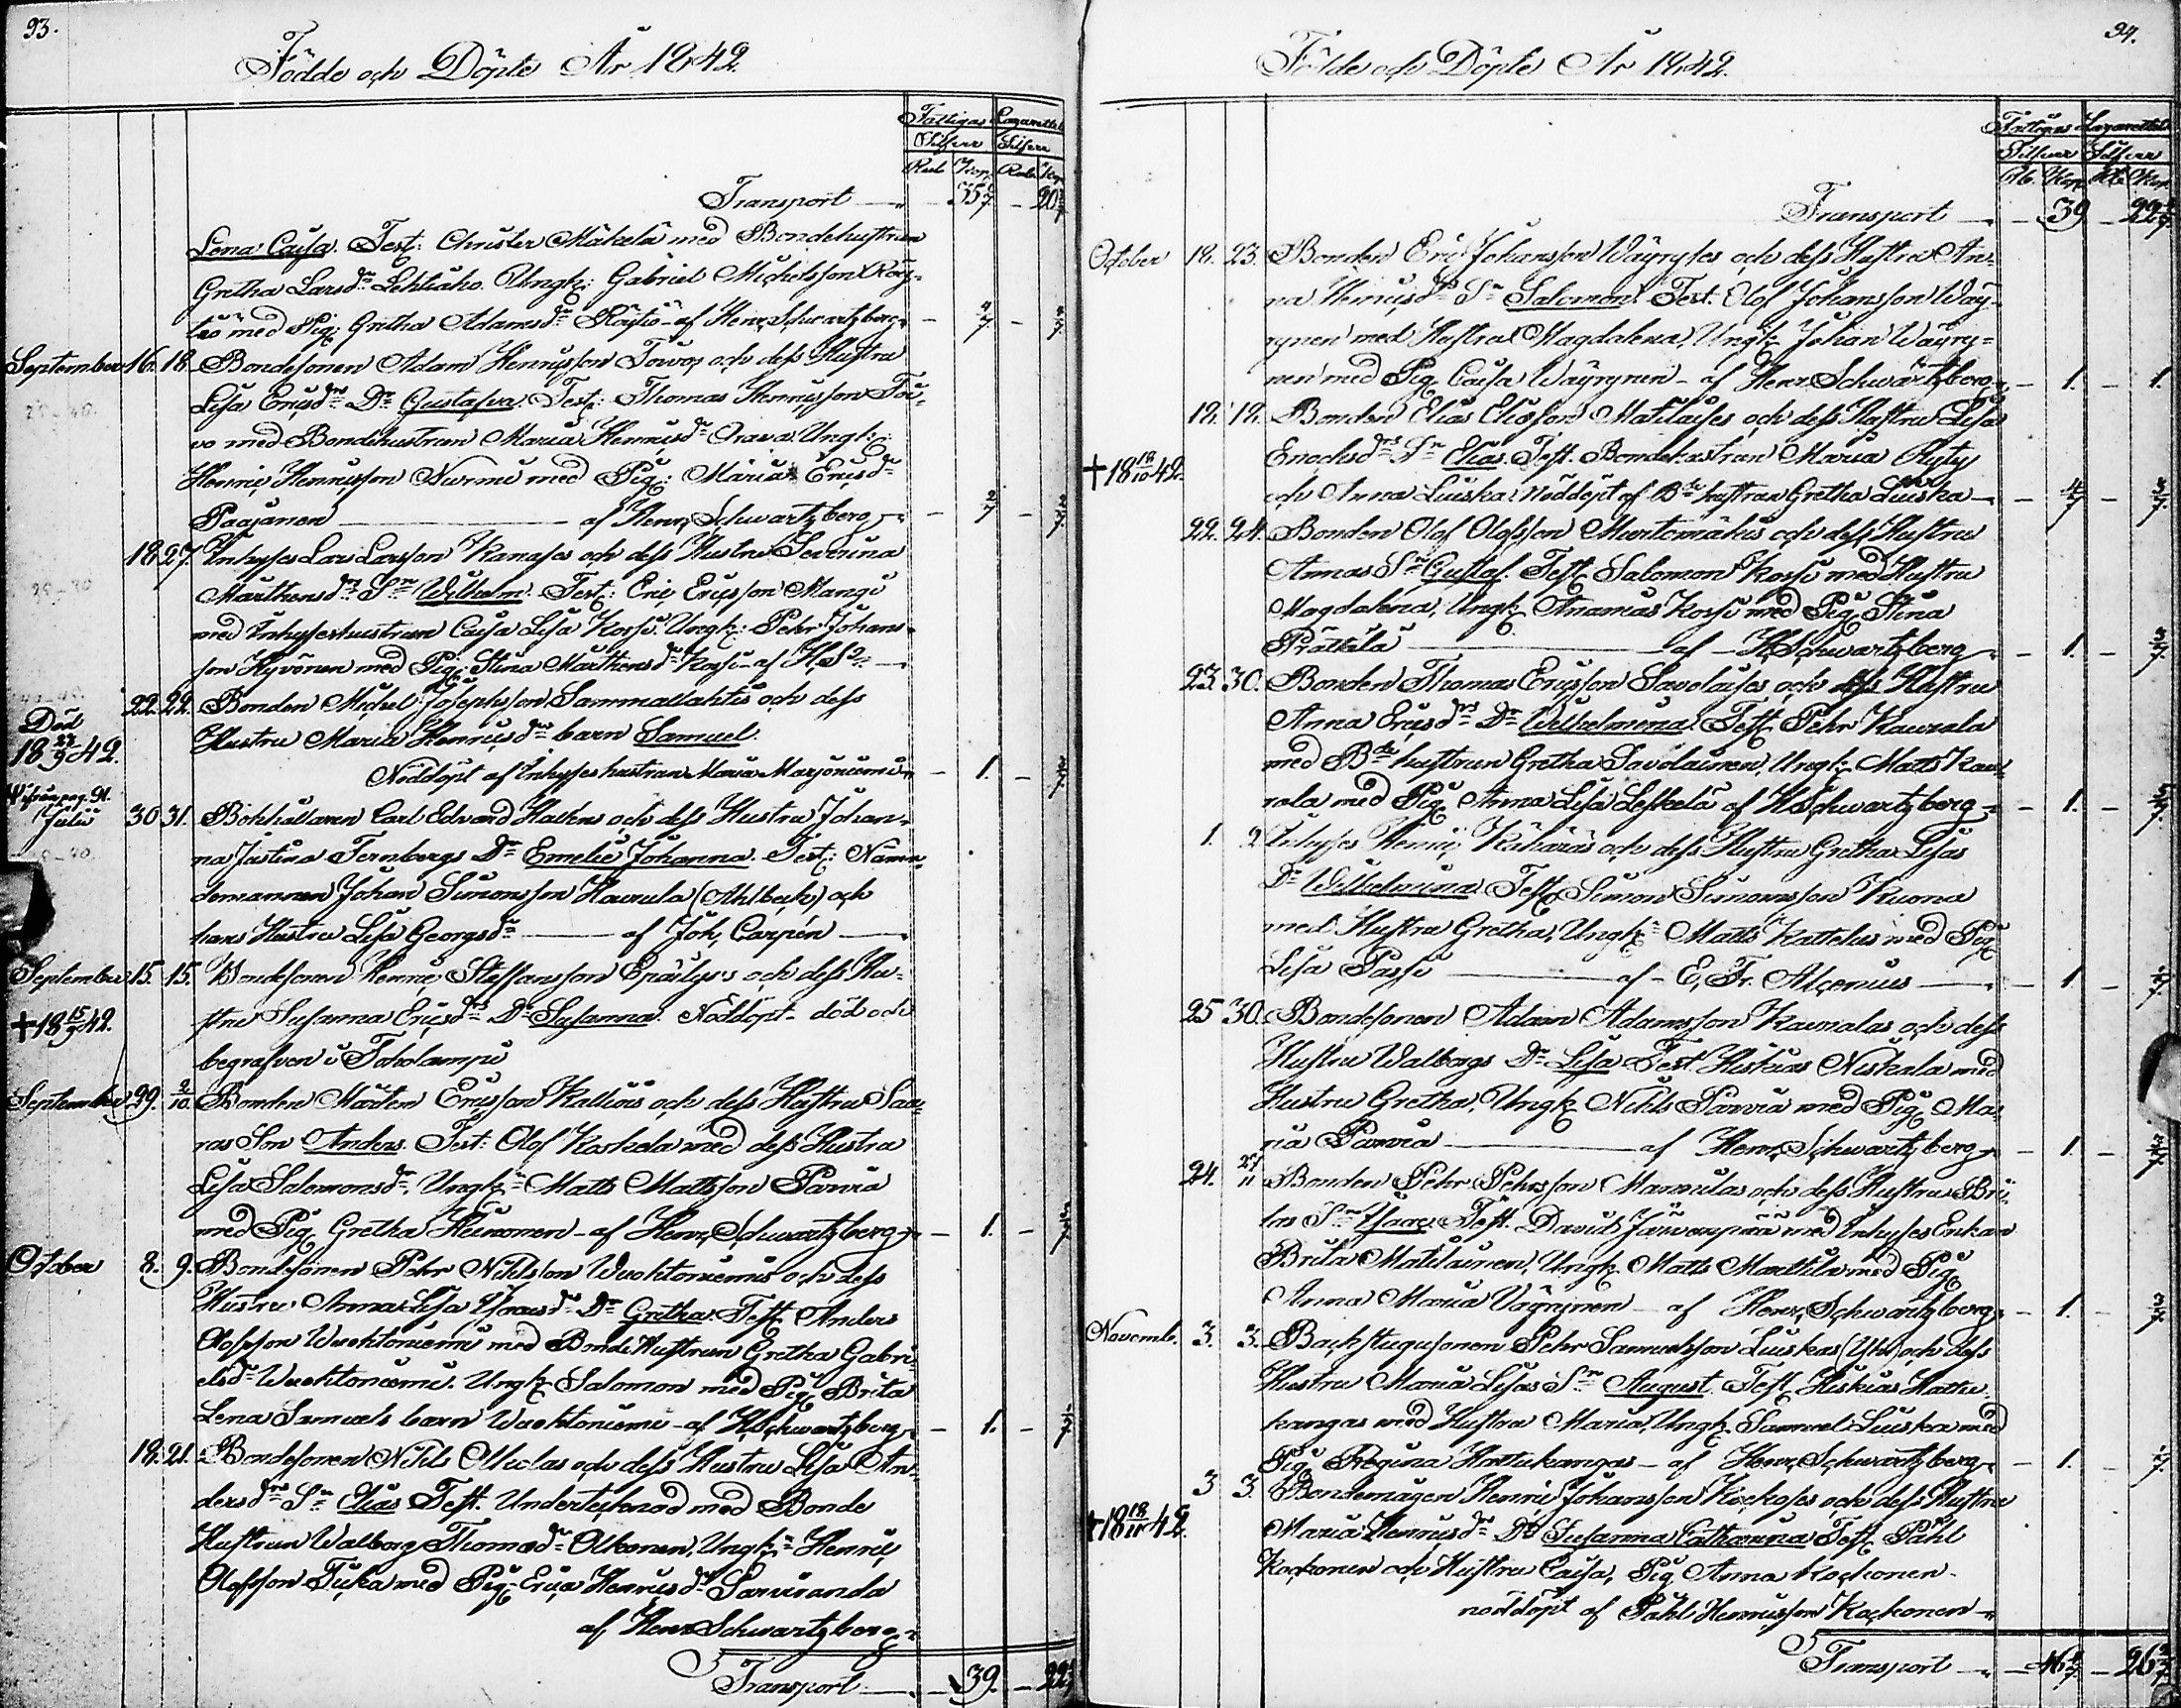 93.
Födde och Döpte År 1842.
Fattigas Lazarettet
Silfver Silfver
Rub Kop Rub Kop
Transport — 35 6/7 — 20 4/7
Lena Cajsa. Test: Christer Mäkelä med Bondehustrun
Gretha Larsdr Lehtiaho. Ungk: Gabriel Michelsson Röy-
tiö med Pig: Gretha Adamsdr Röytiö - af Henr. Schwartzberg
September 16. 18. Bondesonen Adam Henricsson Touvos och dess Hustru
Lisa Ericsdrs Dr Gustafva. Test: Thomas Henricsson Tou-
vo med Bondehustrun Maria Henricsdr Orava. Ungk:
Henric Henricsson Nurmi med Pig: Maria Ericsdr
Paajanen — af Henr. Schwartzberg
18. 27. Inhyses Lars Larsson Kanases och dess Hustru Severina
Mårthensdrs Sn Wilhelm. Test: Eric Ericsson Mangi
med Inhyseshustrun Cajsa Lisa Korpi. Ungk: Pehr Johans-
son Hyvönen med Pig: Stina Mårthensdr Korpi - af H. S.
22. 22. Bonden Michel Josephsson Sammallahtis och dess
Död
18 23/9 42.
Hustru Maria Henricsdrs barn Samuel.
Nöddöpt af Inhyses hustrun Maria Marjoniemi — 1. —
ifrån pag. 91.
Julii 30 31. Bokhållaren Carl Edvard Hallens och dess Hustru Johan-
na Justina Ternbergs Dr Emelie Johanna. Test: Nämn-
demannen Johan Simonsson Haurula (Ahlbeck) och
hans Hustru Lisa Georgsdr — af Joh. Carpén —
September 15. 15. Bondesonen Henric Staffansson Erkkilys och dess Hu-
+ 18 15/9 42.
stru Susanna Ericsdrs Dr Susanna. Nöddöpt - död och
begrafven i Toholampi
September 29. 2/10. Bonden Mårten Ericsson Kalliös och dess Hustru Saa-
ras Son Anders. Test: Olof Koskela med dess Hustru
Lisa Salomonsdr, Ungk: Matts Mattsson Parvia
med Pig. Gretha Heinonen - af Henr. Schwartzberg — 1. —
October 8. 9. Bondesonen Pehr Nilsson Wuohtoniemis och dess
Hustru Anna Lisa Isacsdrs Dr Gretha. Test: Anders
Olofsson Wuohtoniemi med Bonde Hustrun Gretha Gabri-
elsdr Wuohtoniemi. Ungk: Salomon med Pig. Brita
Lena Samuels barn Wuohtoniemi - af H. Schwartzberg — 1. —
18. 21. Bondesonen Nils Ollilas och dess Hustru Lisa An-
dersdrs Sn Elias Test. Undertecknad med Bonde
Hustrun Walborg Thomasdr Olkonen, Ungk: Henric
Olofsson Tuka med Pig: Erica Henricsdr Sariranda
af Henr. Schwartzberg
Transport — 39. — 22
94.
Födde och Döpte År 1842.
Fattigas Lazarettet
Silfver Silfver
Rb. Kop. Rb. Kop.
Transport — 39 — 22
October 18. 23. Bonden Eric Johansson Wäyryses och dess Hustru An-
na Henricsdrs Sn Salomon. Test. Olof Johansson Wäy-
rynen med Hustru Magdalena, Ungk: Johan Wäyry-
nen med Pig. Caisa Wäyrynen - af Henr. Schwartzberg — 1. — 1.
12. 12. Bonden Elias Eliasson Matilaises och dess Hustru Lisa
+ 18 12/10 42.
Enochsdrs Sn Elias. Test. Bondehustrun Maria Ryty
och Anna Luiska. Nöddöpt af Bde hustrun Gretha Luiska
22. 24. Bonden Olof Olofsson Murtomäkis och dess Hustru
Annas Sn Gustaf. Test. Salomon Korpi med Hustru
Magdalena, Ungk. Ananias Korpi med Pig. Stina
Prättälä — af H. Schwartzberg — 1. —
23. 30. Bonden Thomas Ericsson Savolaises och dess Hustru
Anna Ericsdrs Dr Wilhelmina. Test. Pehr Kaurala
med Bde hustrun Gretha Savolainen, Ungk: Matts Kau-
rala med Pig. Anna Lisa Leskelä af H. Schwartzberg — 1. —
1. 2. Inhyses Henric Kähäräs och dess Hustru Gretha Lisas
Dr Wilhelmina. Test. Simon Simonsson Kuona
med Hustru Gretha, Ungk: Matts Kattelus med Pig.
Lisa Passi — af - E. Fr. Alcenius — 1 —
25 30. Bondesonen Adam Adamsson Kauralas och dess
Hustru Walborgs Dr Lisa Test. Hiskias Niskala med
Hustru Gretha, Ungk. Nils Parvia med Pig. Ma-
ria Parvia — af Henr. Schwartzberg — 1. —
24. 27/11 Bonden Pehr Pehrsson Mannilas och dess Hustru Bri-
tas Sn Isaac. Test. David Järvenpää med Inhyses Enkan
Brita Matilainen, Ungk. Matts Marttila med Pig.
Anna Maria Väyrynen - af Henr. Schwartzberg — 1. —
Novemb. 3. 3. Backstugusonen Pehr Samuelsson Luiskas (Yht) och dess
Hustru Maria Lisas Sn August. Test. Hiskias Hattu-
kangas med Hustru Maria, Ungk. Samuel Luiska med
Pig. Regina Hattukangas - af Henr. Schwartzberg — 1. —
3 3. Bondemågen Henric Johansson Kockoses och dess Hustru
+ 18 18/11 42.
Maria Henricsdrs Dr Susanna Catharina Test. Påhl
Kockonen och Hustru Caisa, Pig. Anna Kockonen -
nöddöpt af Påhl Henricsson Kockonen
Transport — 46 — 26